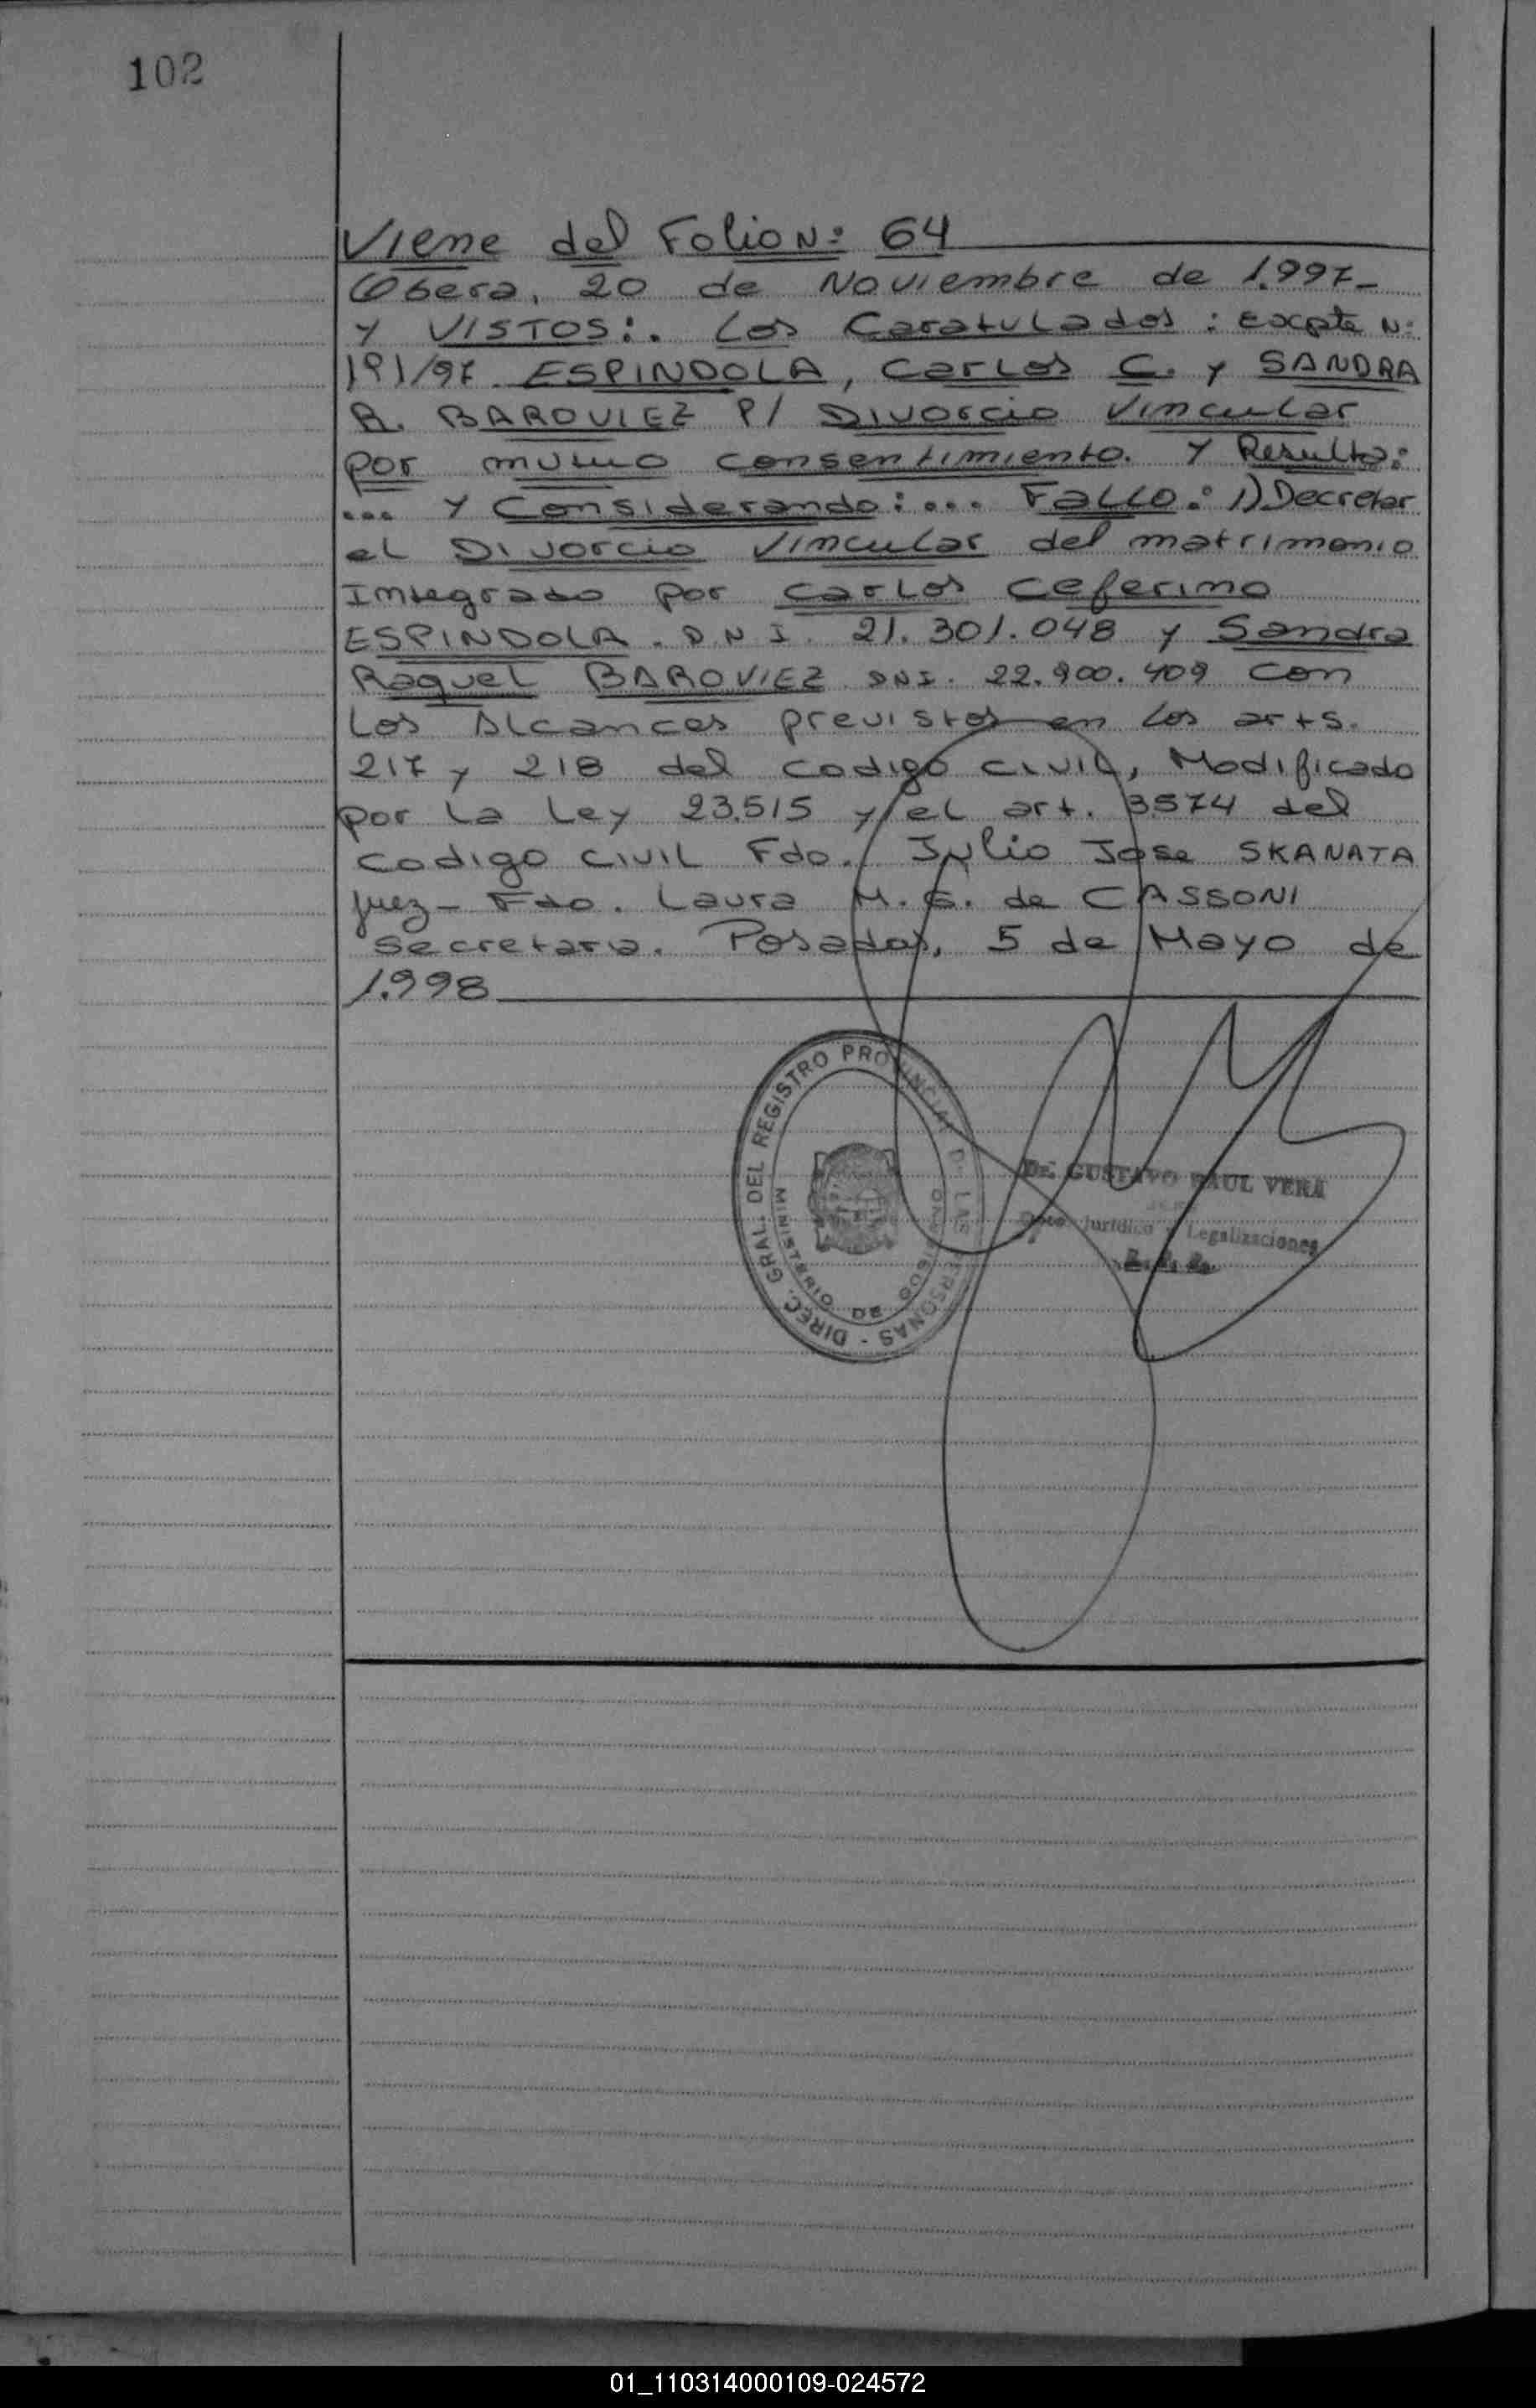 102
Viene del Folio N: 64
Obera, 20 de Noviembre de 1.997-
Y VISTOS:. Los Caratulados: Expte N:
191/97 ESPINDOLA, Carlos C. y SANDRA
R. BAROVIEZ P/ Divorcio Vincular
por mutuo consentimiento. Y Resulta:
... Y Considerando:... FALLO: 1) Decretar
el Divorcio Vincular del matrimonio
Integrado por Carlos Ceferino
ESPINDOLA. D.N.I. 21.301.048 y Sandra
Raquel BAROVIEZ DNI. 22.900.409 con
Los Alcances previstos en los arts.
217 y 218 del codigo civil, Modificado
por La Ley 23.515 y el art. 3574 del
codigo civil Fdo. Julio Jose SKANATA
juez- Fdo. Laura M.G. de CASSONI
Secretaria. Posadas, 5 de Mayo de
1.998
DIREC. GRAL. DEL REGISTRO PROVINCIAL DE LAS PERSONAS -
MINISTERIO DE GOBIERNO
Dr. GUSTAVO RAUL VERA
JEFE
Dpto. Jurídico y Legalizaciones
01_110314000109-024572